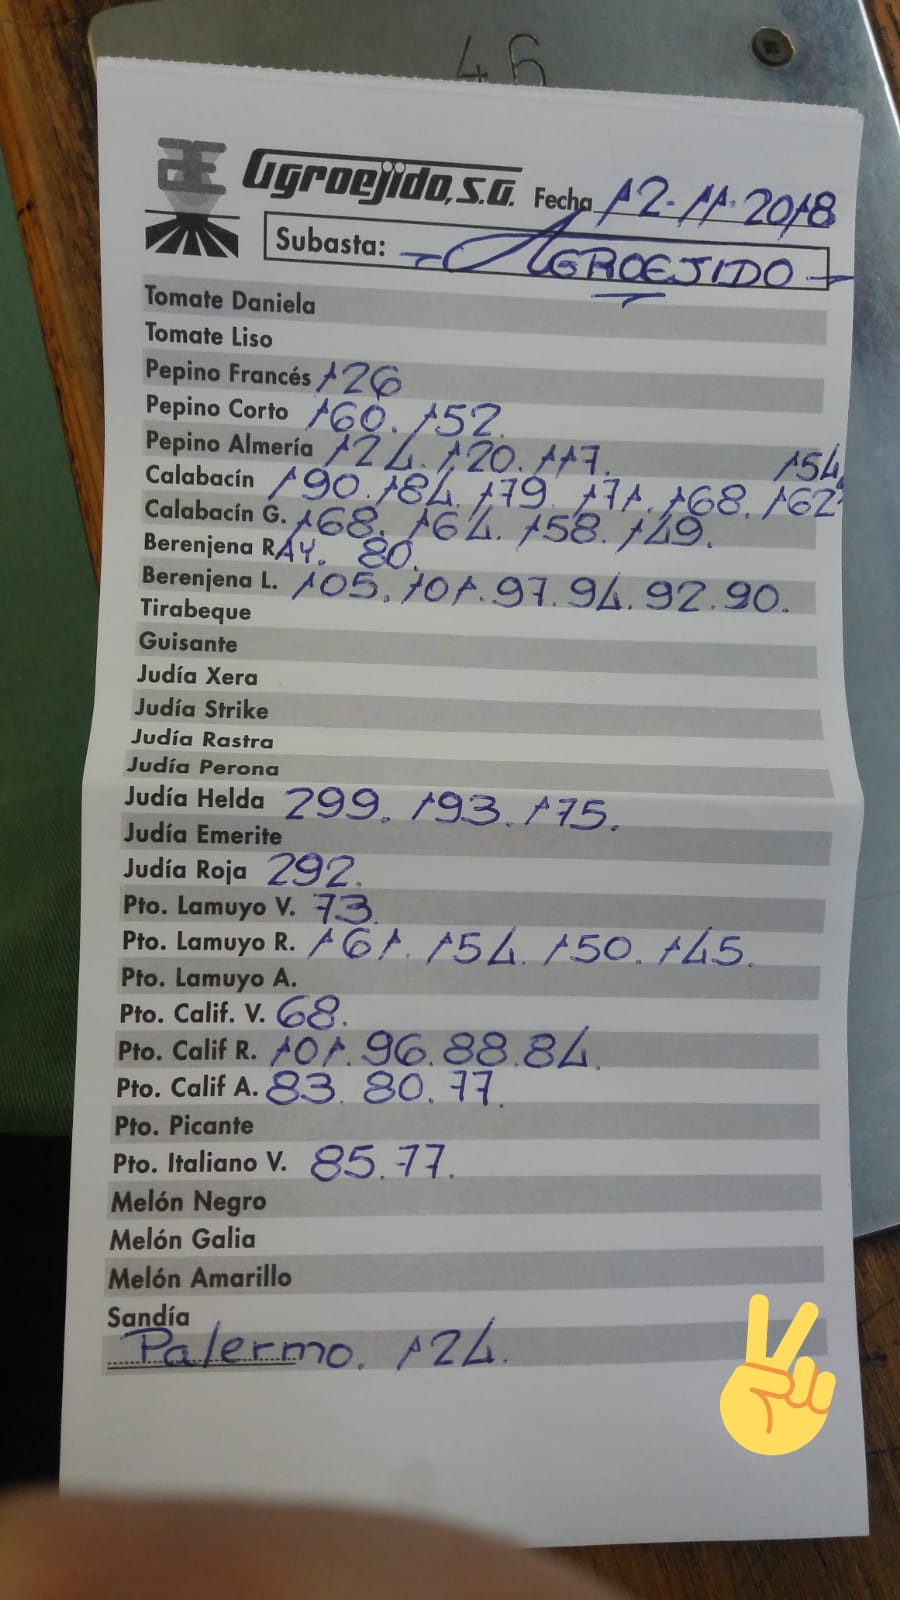 46
AE Agroejido, S.A. Fecha 12-11-2018
Subasta: AGROEJIDO
Tomate Daniela
Tomate Liso
Pepino Francés 126
Pepino Corto 160. 152.
Pepino Almería 124. 120. 117.
Calabacín 190. 184. 179. 171. 168. 162. 154.
Calabacín G. 168. 164. 158. 149.
Berenjena RAY. 80.
Berenjena L. 105. 101. 97. 94. 92. 90.
Tirabeque
Guisante
Judía Xera
Judía Strike
Judía Rastra
Judía Perona
Judía Helda 299. 193. 175.
Judía Emerite
Judía Roja 292.
Pto. Lamuyo V. 73.
Pto. Lamuyo R. 161. 154. 150. 145.
Pto. Lamuyo A.
Pto. Calif. V. 68.
Pto. Calif R. 101. 96. 88. 84.
Pto. Calif A. 83. 80. 77.
Pto. Picante
Pto. Italiano V. 85. 77.
Melón Negro
Melón Galia
Melón Amarillo
Sandía
Palermo. 124.